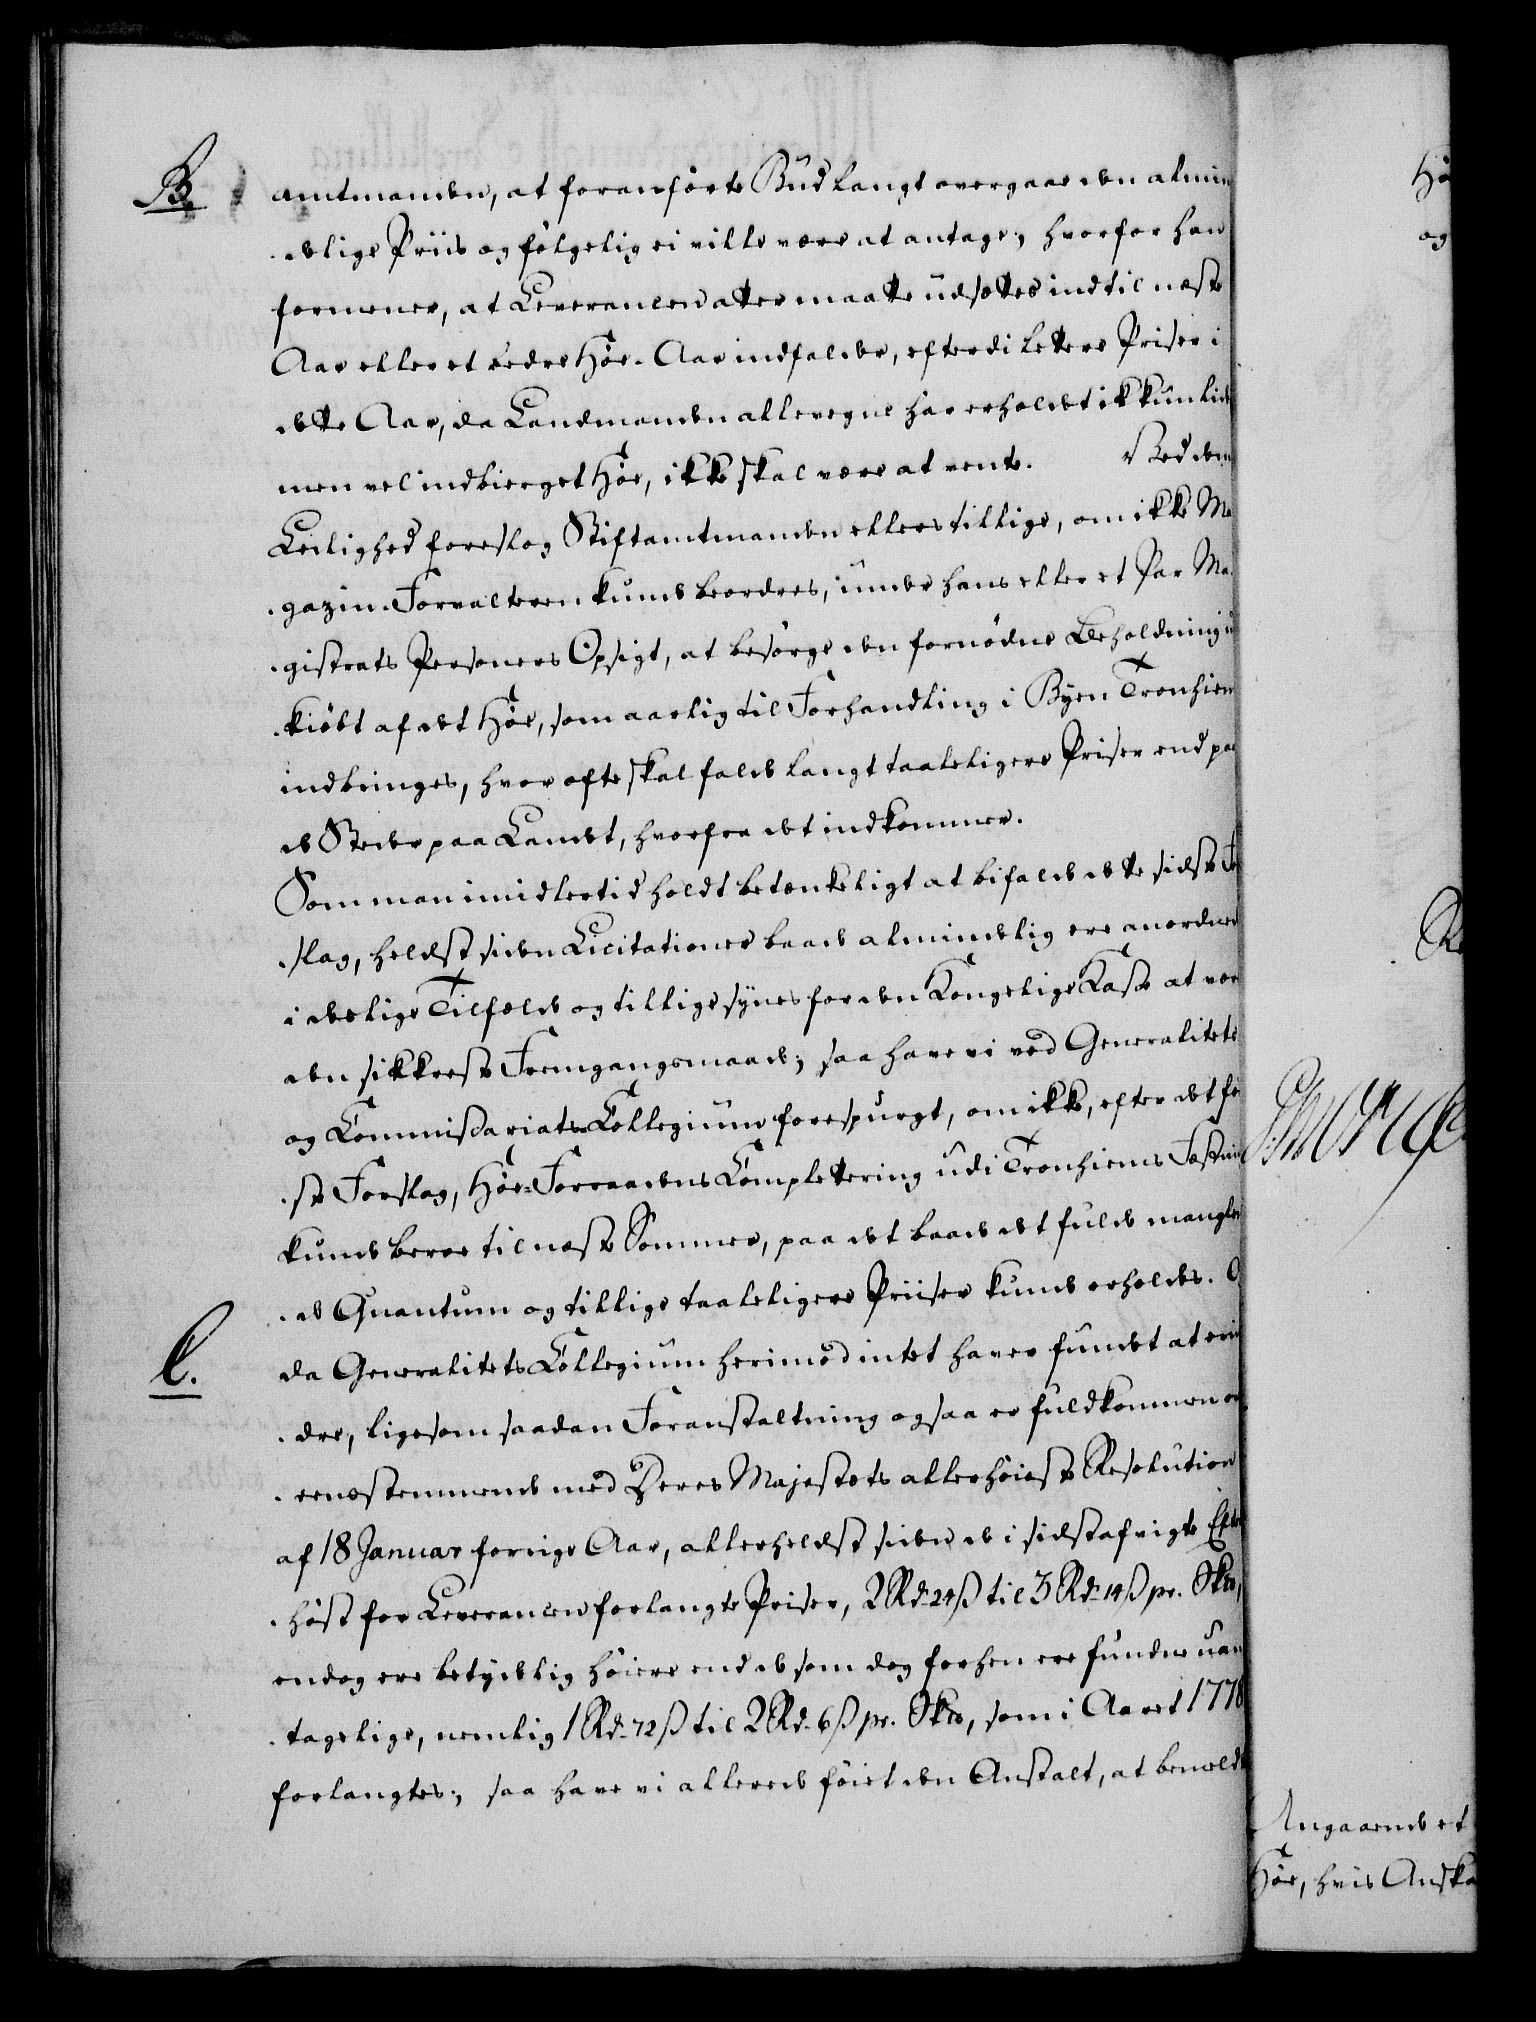 B.
amtmanden, at foranførte Bud langt overgaar den almin
delige Priis og følgelig ei ville være at antage; hvorfor han
formener, at Leverancen atter maatte udsættes indtil næste
Aar eller et bedre Høe-Aar indfalder, efterdi lettere Priser i
dette Aar, da Landmanden allevegne har erholdet ikkun lidet
men vel indbierget Høe, ikke skal være at vente. Ved den
Leilighed foreslog Stiftamtmanden ellers tillige, om ikke Ma
gazin-Forvalteren kunde beordres, under hans eller et Par Ma
gistrats Personers Opsigt, at besørge den fornødne Beholdning
kiøbt af det Høe, som aarlig til Forhandling i Byen Tronhiem
indbringes, hvor ofte skal falde langt taaleligere Priser end paa
de Steder paa Landet, hvorfra det indkommer.
Som man imidlertid holdt betænkeligt at bifalde dette sidste For
slag, heldst siden Licitationer baade almindelig ere anordnede
i deslige Tilfælde og tillige synes for den Kongelige Kasse at være
den sikkreste Fremgangsmaade; saa have vi ved Generalitets
og Commissariats-Collegium forespurgt, om ikke, efter det før
ste Forslag, Høe-Forraadens Complettering udi Tronhiems Fæstning
kunde beroe til næste Sommer, paa det baade det fulde mangle
de Quantum og tillige taaleligere Priiser kunde erholdes. Og
C.
da Generalitets Collegium herimod intet haver fundet at erin
dre, ligesom saadan Foranstaltning ogsaa er fuldkommen ov
eensstemmende med Deres Majestæts allerhøieste Resolution
af 18 Januar forrige Aar, allerheldst siden de i sidstafvigte Efter
høst for Leverancen forlangte Priser, 2 Rd. 24 ß til 3 Rd. 14 ß pr. Skto,
endog ere betydelig høiere end de som dog forhen ere fundne uan
tagelige, nemlig 1 Rd. 72 ß til 2 Rd. 6 ß pr. Skto, som i Aaret 1778
forlangtes; saa have vi allerede føiet den Anstalt, at bemeldte
Hø
og
Angaaende et
Høe, hvis Anska